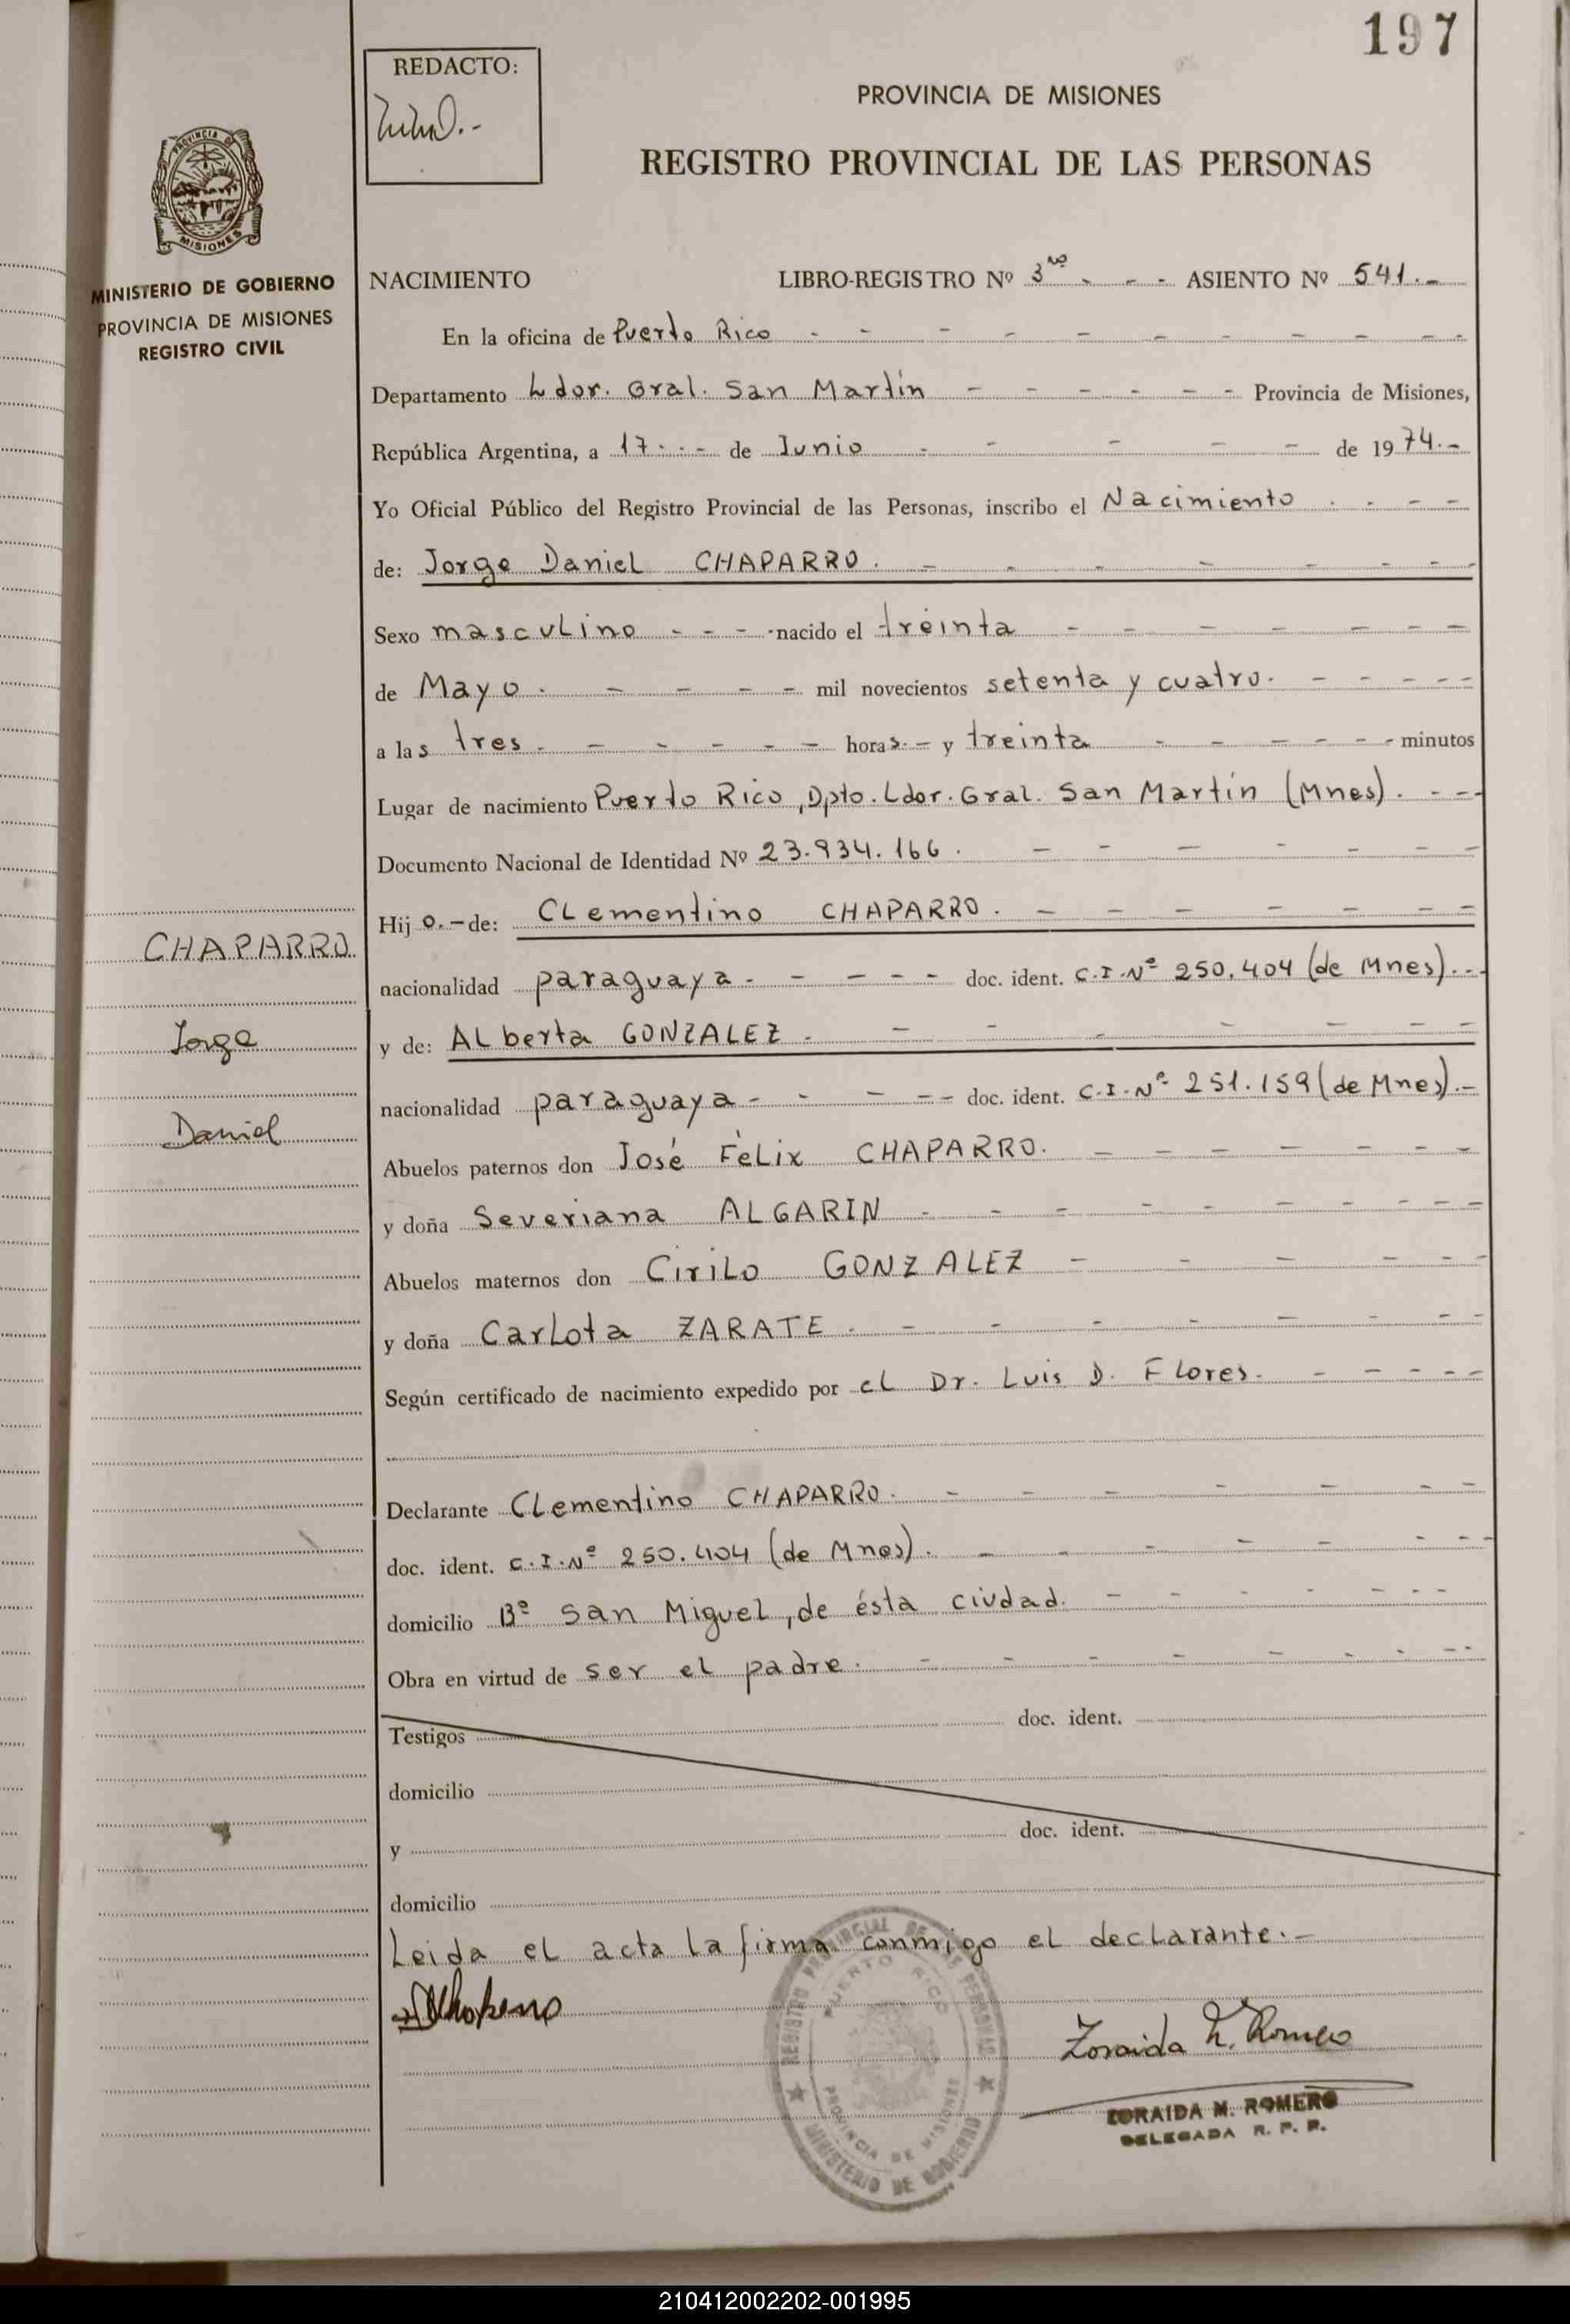 197
REDACTO:
PROVINCIA DE MISIONES
REGISTRO PROVINCIAL DE LAS PERSONAS
PROVINCIA DE
MISIONES
MINISTERIO DE GOBIERNO
PROVINCIA DE MISIONES
REGISTRO CIVIL
NACIMIENTO LIBRO-REGISTRO Nº 3ro - - - ASIENTO Nº 541.-
En la oficina de Puerto Rico - - - - - - - - - -
Departamento Ldor. Gral. San Martín - - - - - - Provincia de Misiones,
República Argentina, a 17 - - - de Junio - - - - - de 1974.-
Yo Oficial Público del Registro Provincial de las Personas, inscribo el Nacimiento - - - -
de: Jorge Daniel CHAPARRO. - - - - - - - -
Sexo masculino - - - - nacido el treinta - - - - - - -
de Mayo. - - - - mil novecientos setenta y cuatro. - - - - -
a las tres. - - - - - horas.- y treinta - - - - - - minutos
Lugar de nacimiento Puerto Rico, Dpto. Ldor. Gral. San Martín (Mnes). - - -
Documento Nacional de Identidad Nº 23.934.166. - - - - - - -
Hijo.- de: CLementino CHAPARRO. - - - - - - -
nacionalidad paraguaya - - - - - doc. ident. C.I.Nº 250.404 (de Mnes). - -
y de: ALberta GONZALEZ - - - - - - - -
nacionalidad paraguaya - - - - - doc. ident. C.I.Nº 251.159 (de Mnes).-
Abuelos paternos don José FéLix CHAPARRO. - - - - - - -
y doña Severiana ALGARIN - - - - - - - - -
Abuelos maternos don CiriLo GONZALEZ - - - - - -
y doña CarLota ZARATE. - - - - - - -
Según certificado de nacimiento expedido por el Dr. Luis D. FLores. - - - - -
Declarante CLementino CHAPARRO. - - - - - - -
doc. ident. C.I.Nº 250.404 (de Mnes). - - - - - - -
domicilio Bº San Miguel, de ésta ciudad. - - - - - - -
Obra en virtud de ser el padre. - - - - - - - - -
Testigos doc. ident.
domicilio
y doc. ident.
domicilio
Leida el acta la firma conmigo el declarante.-
CHAPARRO
Jorge
Daniel
REGISTRO PROVINCIAL DE LAS PERSONAS
PUERTO RICO
PROVINCIA DE MISIONES
MINISTERIO DE GOBIERNO
Zoraida M. Romero
ZORAIDA M. ROMERO
DELEGADA R. P. P.
210412002202-001995